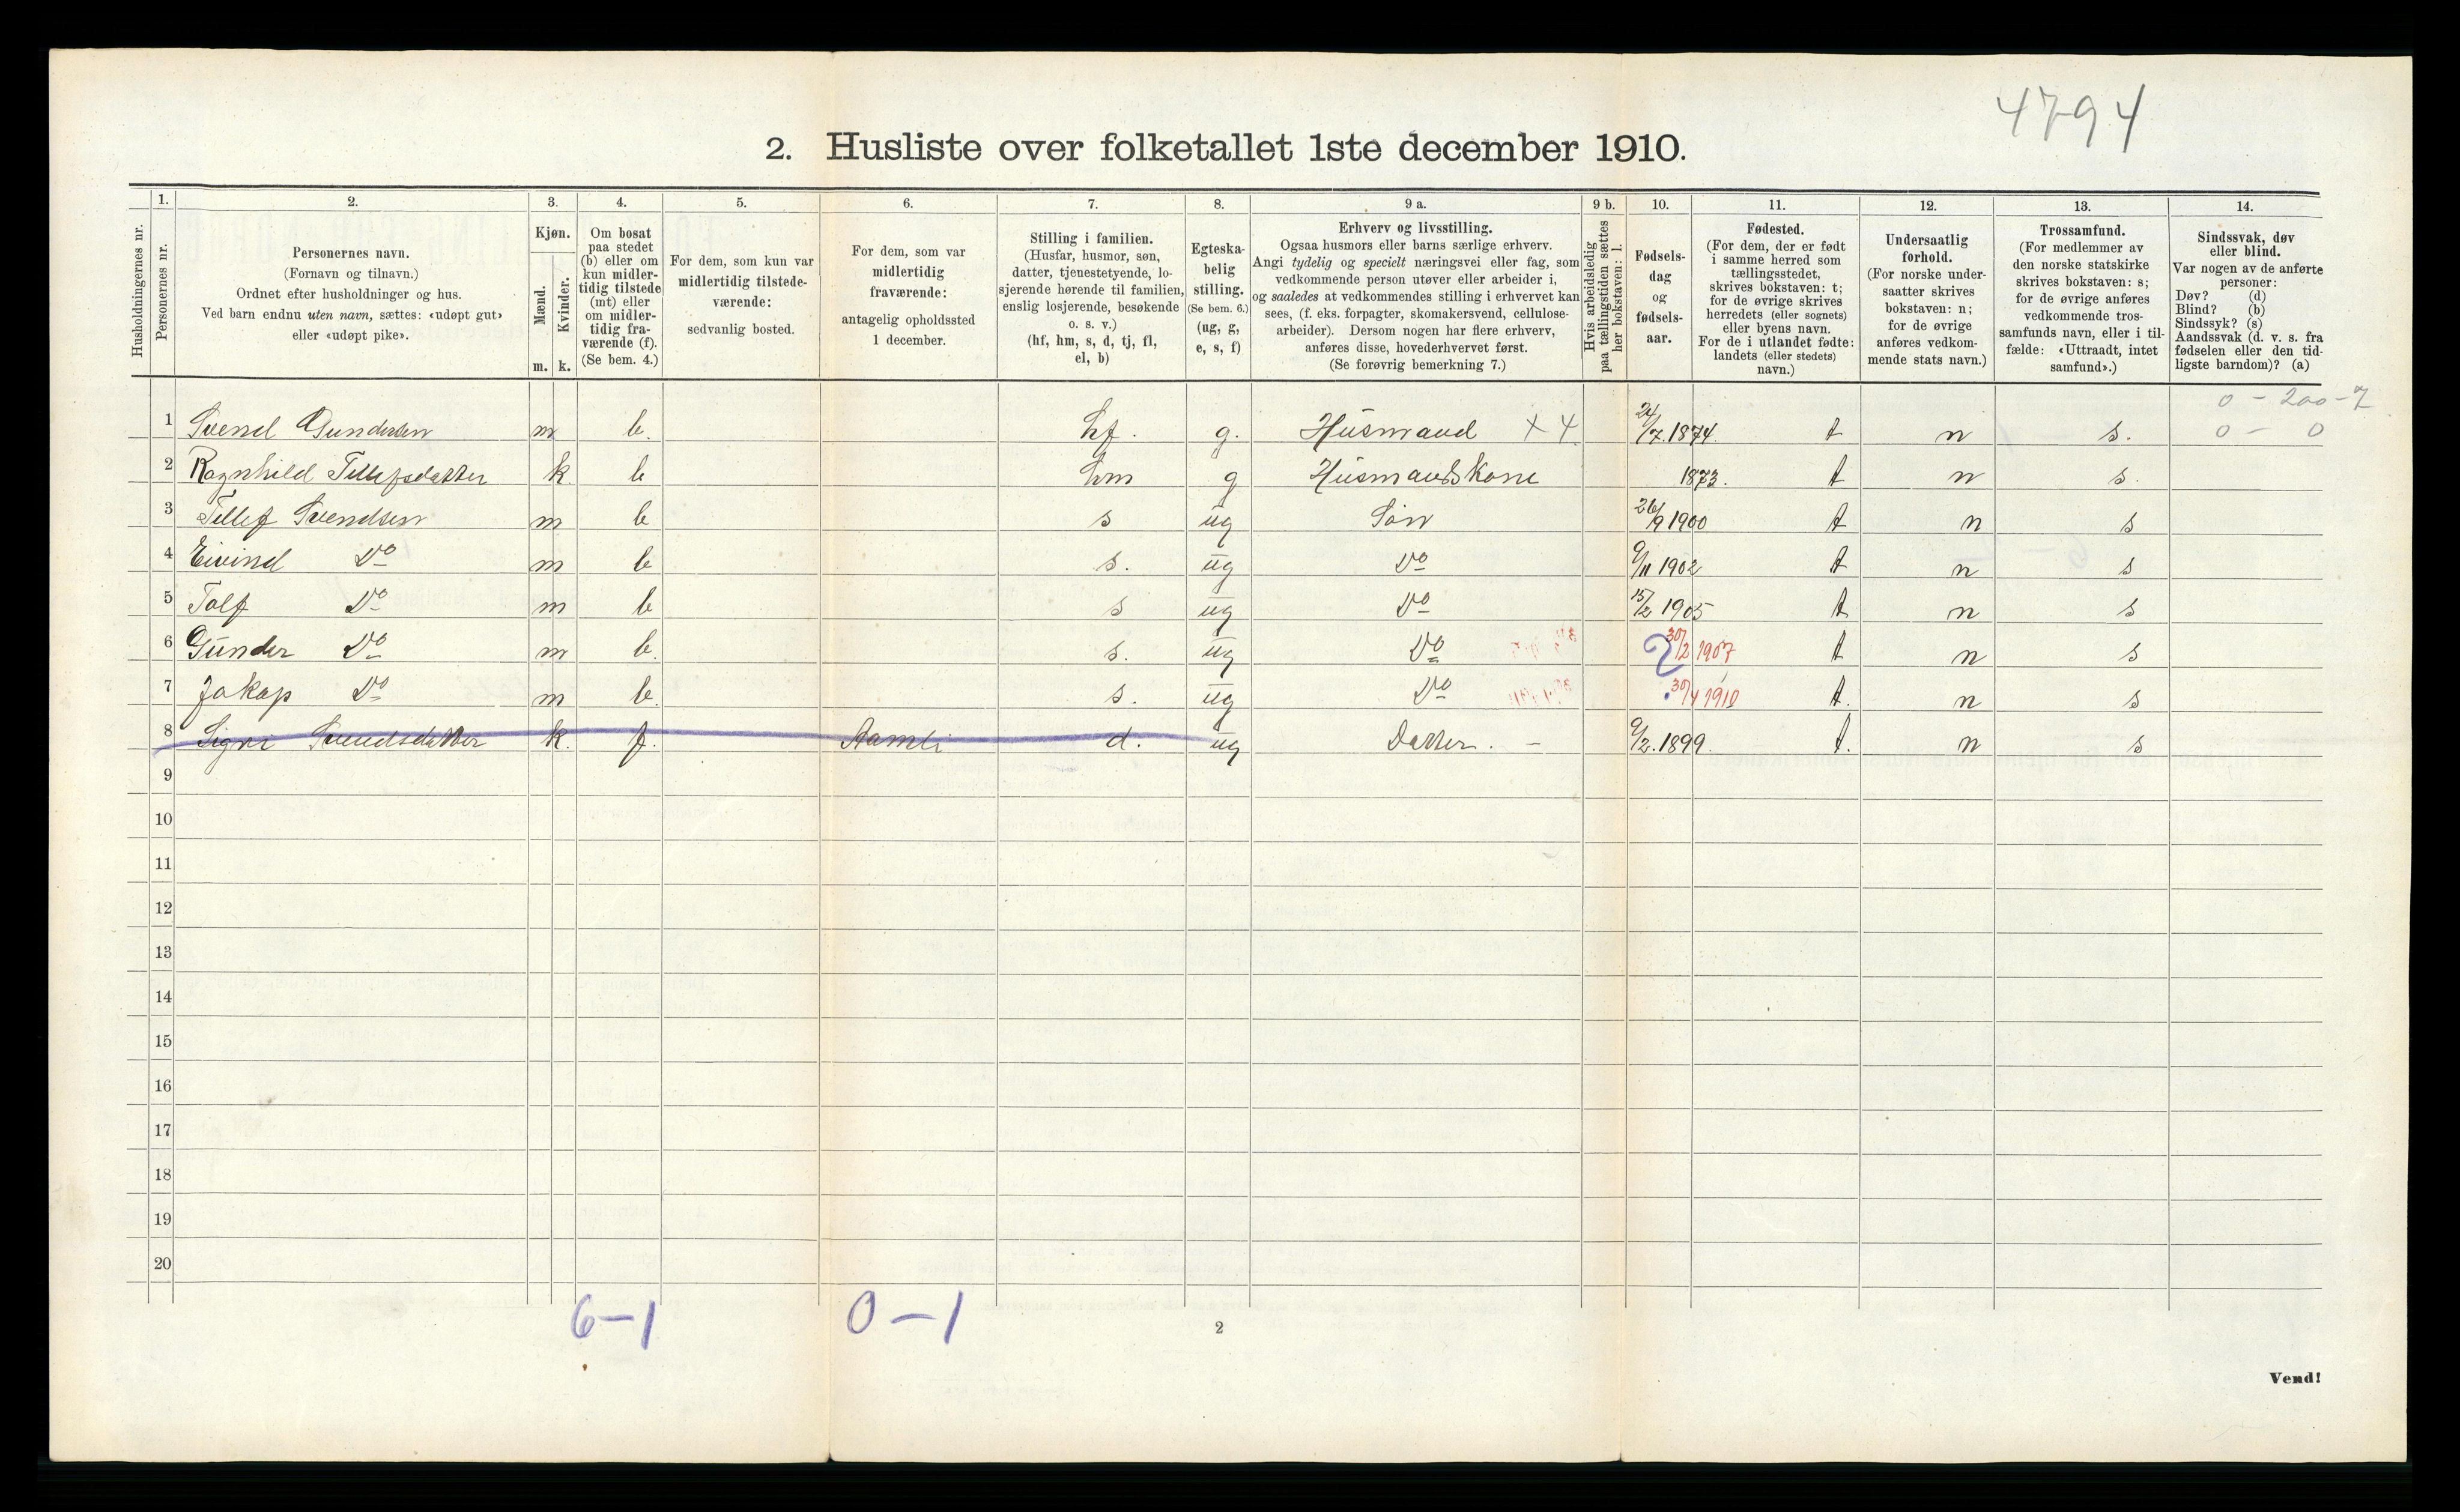 4794
2. Husliste over folketallet 1ste december 1910.
Husholdningernes nr.
1. Personernes nr.
2. Personernes navn. (Fornavn og tilnavn.) Ordnet efter husholdninger og hus. Ved barn endnu uten navn, sættes: «udøpt gut» eller «udøpt pike».
3. Kjøn. Mænd. Kvinder. m. k.
4. Om bosat paa stedet (b) eller om kun midler-tidig tilstede (mt) eller om midler-tidig fra-værende (f). (Se bem. 4.)
5. For dem, som kun var midlertidig tilstede-værende: sedvanlig bosted.
6. For dem, som var midlertidig fraværende: antagelig opholdssted 1 december.
7. Stilling i familien. (Husfar, husmor, søn, datter, tjenestetyende, lo-sjerende hørende til familien, enslig losjerende, besøkende o. s. v.) (hf, hm, s, d, tj, fl, el, b)
8. Egteska-belig stilling. (Se bem. 6.) (ug, g, e, s, f)
9 a. Erhverv og livsstilling. Ogsaa husmors eller barns særlige erhverv. Angi tydelig og specielt næringsvei eller fag, som vedkommende person utøver eller arbeider i, og saaledes at vedkommendes stilling i erhvervet kan sees, (f. eks. forpagter, skomakersvend, cellulose-arbeider). Dersom nogen har flere erhverv, anføres disse, hovederhvervet først. (Se forøvrig bemerkning 7.)
9 b. Hvis arbeidsledig paa tællingstiden sættes her bokstaven: l.
10. Fødsels-dag og fødsels-aar.
11. Fødested. (For dem, der er født i samme herred som tællingsstedet, skrives bokstaven: t; for de øvrige skrives herredets (eller sognets) eller byens navn. For de i utlandet fødte: landets (eller stedets) navn.)
12. Undersaatlig forhold. (For norske under-saatter skrives bokstaven: n; for de øvrige anføres vedkom-mende stats navn.)
13. Trossamfund. (For medlemmer av den norske statskirke skrives bokstaven: s; for de øvrige anføres vedkommende tros-samfunds navn, eller i til-fælde: «Uttraadt, intet samfund».)
14. Sindssvak, døv eller blind. Var nogen av de anførte personer: Døv? (d) Blind? (b) Sindssyk? (s) Aandssvak (d. v. s. fra fødselen eller den tid-ligste barndom)? (a)
0 - 200 - 7
1 Svend Gundersen m b. hf. g. Husmand X 4 24/7.1874. t n s. 0 - 0
2 Ragnhild Tellefsdatter k b hm g Husmandskone 1873. t n s.
3 Tellef Svendsen m b s ug Søn 26/9 1900 t n s
4 Eivind Do m b s. ug Do 9/11 1902 t n s
5 Tolf Do m b s ug Do 15/2 1905 t n s
6 Gunder Do m b. s. ug Do 30/2 1907 t n s
7 Jakop Do m b. s. ug Do 30/4 1910 t. n s
8 Signe Svendsdatter k. f. Aamli d. ug Datter. - 9/2.1899. t. n s
9
10
11
12
13
14
15
16
17
18
19
20
6-1 0-1
2
Vend!